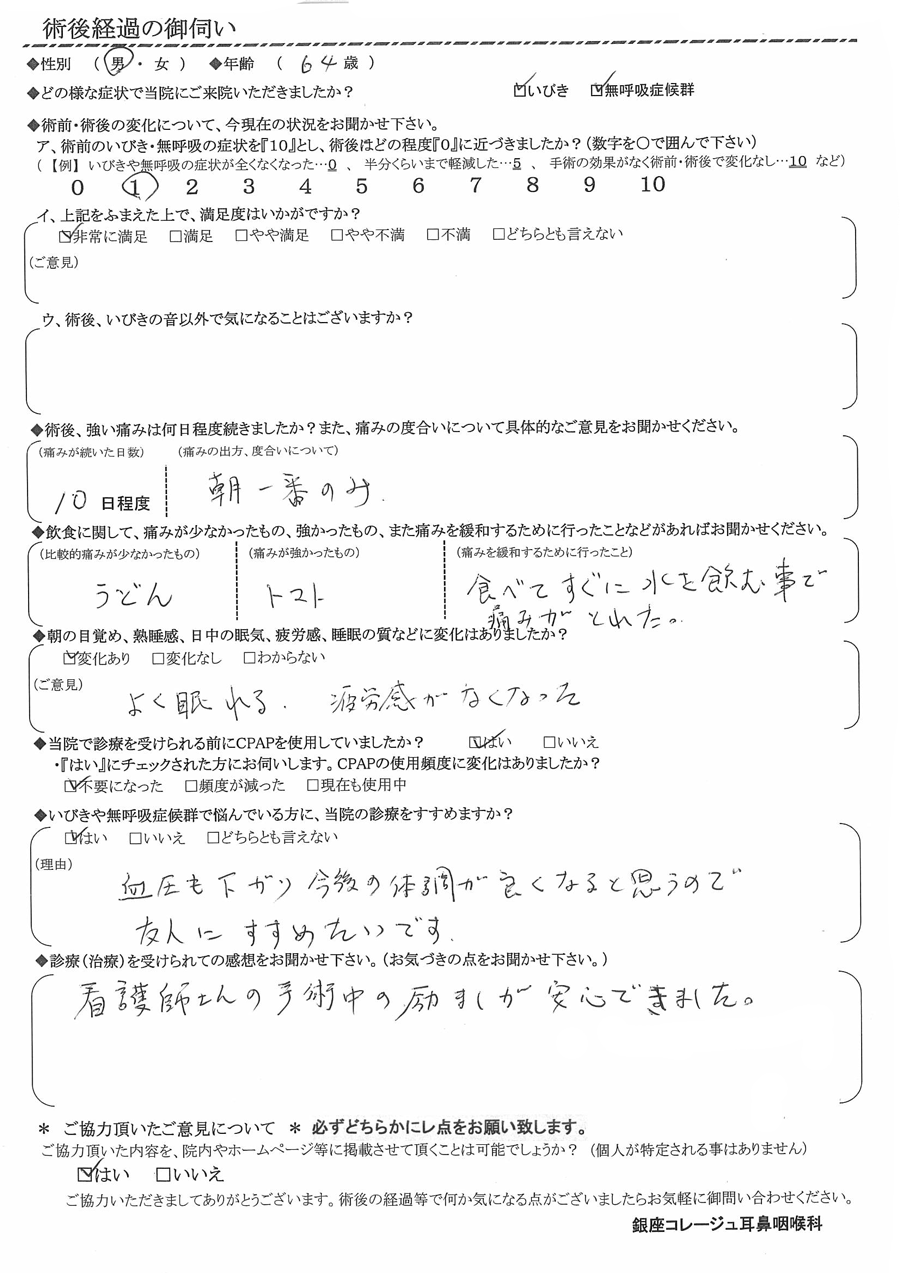 術後経過の御伺い
◆性別 （ 男 ・ 女 ） ◆年齢 （ 64 歳 ）
◆どの様な症状で当院にご来院いただきましたか？ ☑いびき ☑無呼吸症候群
◆術前・術後の変化について、今現在の状況をお聞かせ下さい。
ア、術前のいびき・無呼吸の症状を『10』とし、術後はどの程度『0』に近づきましたか？(数字を〇で囲んで下さい)
（【例】 いびきや無呼吸の症状が全くなくなった…0 、 半分くらいまで軽減した…5 、 手術の効果がなく術前・術後で変化なし…10 など）
0 1 2 3 4 5 6 7 8 9 10
イ、上記をふまえた上で、満足度はいかがですか？
☑非常に満足 □満足 □やや満足 □やや不満 □不満 □どちらとも言えない
(ご意見)
ウ、術後、いびきの音以外で気になることはございますか？
◆術後、強い痛みは何日程度続きましたか？また、痛みの度合いについて具体的なご意見をお聞かせください。
(痛みが続いた日数) (痛みの出方、度合いについて)
10 日程度 朝一番のみ.
◆飲食に関して、痛みが少なかったもの、強かったもの、また痛みを緩和するために行ったことなどがあればお聞かせください。
(比較的痛みが少なかったもの) (痛みが強かったもの) (痛みを緩和するために行ったこと)
うどん トマト 食べてすぐに水を飲む事で
痛みがとれた。
◆朝の目覚め、熟睡感、日中の眠気、疲労感、睡眠の質などに変化はありましたか？
☑変化あり □変化なし □わからない
(ご意見)
よく眠れる. 疲労感がなくなった
◆当院で診療を受けられる前にCPAPを使用していましたか？ ☑はい □いいえ
・『はい』にチェックされた方にお伺いします。CPAPの使用頻度に変化はありましたか？
☑不要になった □頻度が減った □現在も使用中
◆いびきや無呼吸症候群で悩んでいる方に、当院の診療をすすめますか？
☑はい □いいえ □どちらとも言えない
(理由)
血圧も下がり今後の体調が良くなると思うので
友人にすすめたいです.
◆診療(治療)を受けられての感想をお聞かせ下さい。(お気づきの点をお聞かせ下さい。)
看護師さんの手術中の励ましが安心できました。
＊ ご協力頂いたご意見について ＊ 必ずどちらかにレ点をお願い致します。
ご協力頂いた内容を、院内やホームページ等に掲載させて頂くことは可能でしょうか？ (個人が特定される事はありません)
☑はい □いいえ
ご協力いただきましてありがとうございます。術後の経過等で何か気になる点がございましたらお気軽に御問い合わせください。
銀座コレージュ耳鼻咽喉科